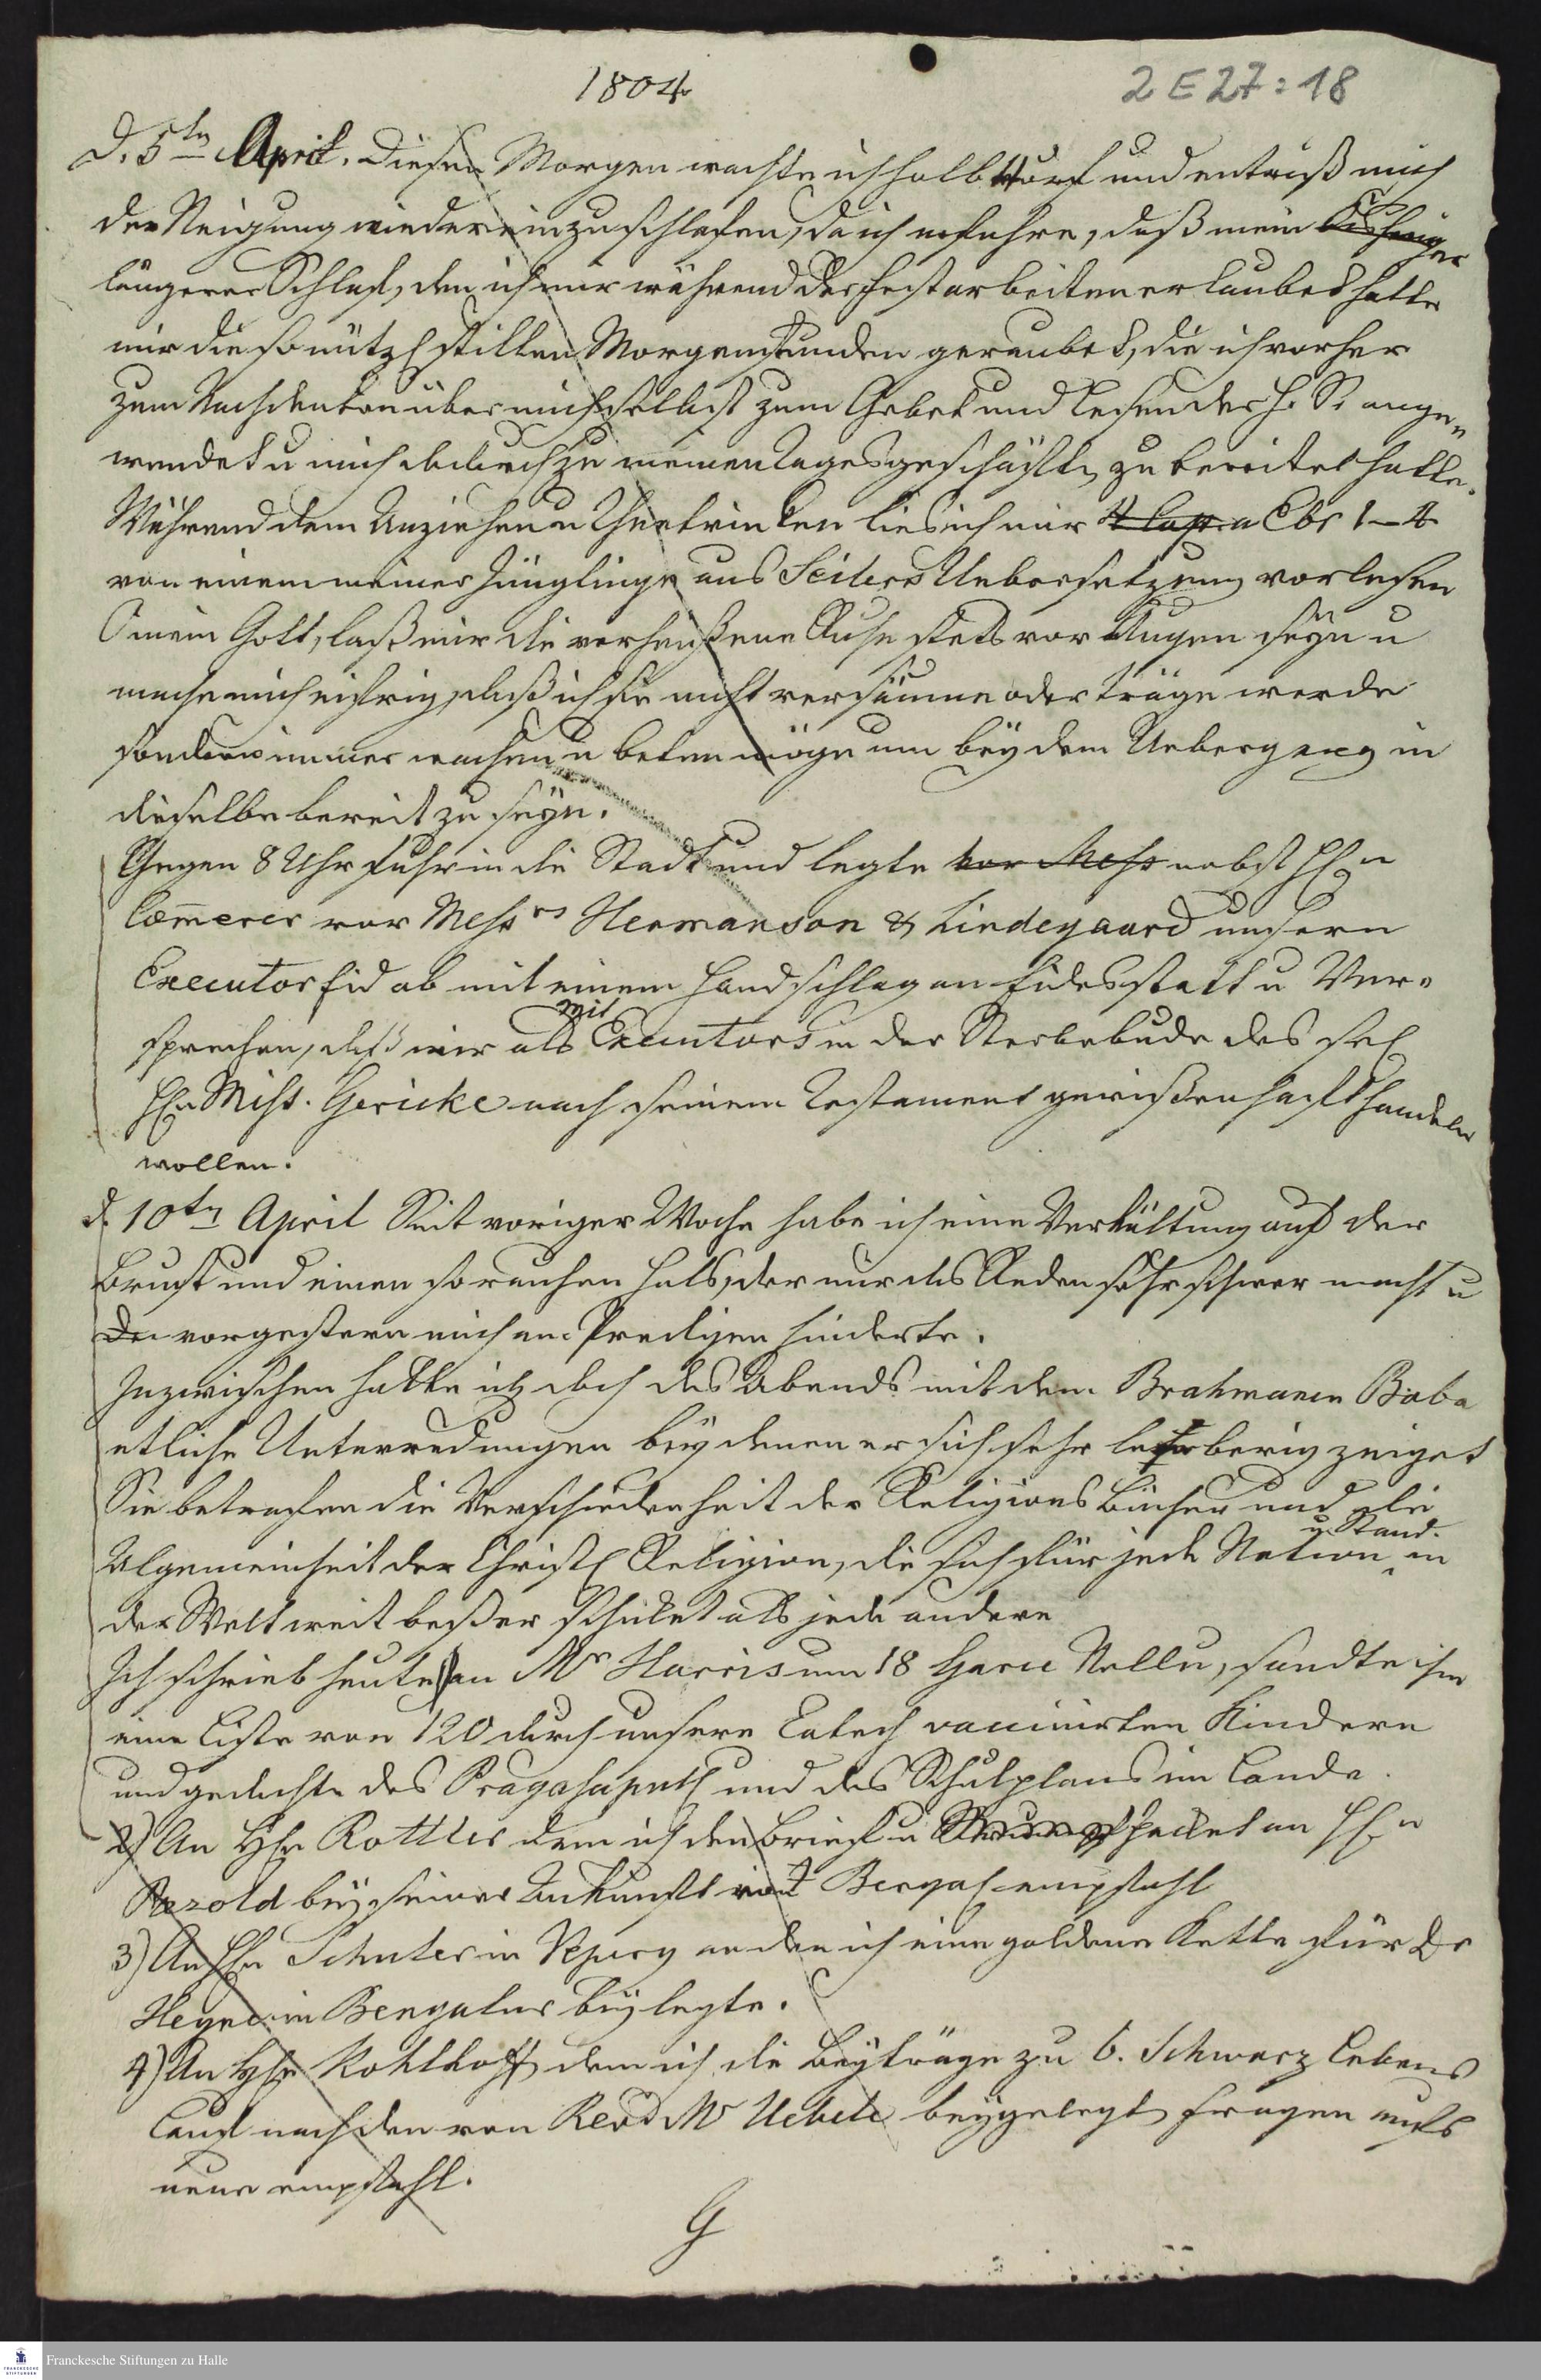 1804
2 E 27 : 18
D. 5tn April. Diesen Morgen wachte ich halb 4 auf und entriß mich
der Neigung wieder einzuschlafen, da ich erfuhr, daß mein bisheriger
längerer Schlaf, den ich mir während der Festarbeiten erlaubet hatte
mir die so nützl stillen Morgenstunden geraubet, die ich vorher
zum Nachdenken über mich selbst zum Gebet und Lesen der H. S. ange„
wendet u mich dadurch zu meinen Tagesgeschäfte zu bereitet hatte.
Während dem Anziehen u Theetrinken lies ich mir Ebr 1–4
von einem meiner Jünglinge aus Seilers Uebersetzung vorlesen
O mein Gott, laß mir die verheißene Ruhe stets vor Augen seyn u
mache mich eifrig, daß ich sie nicht versäume oder träge werde
sondern immer wachen u beten möge um bey dem Uebergang in
dieselbe bereit zu seyn.
Gegen 8 Uhr fuhr in die Stadt und legte vor Messrs nebst HEn
Cæmerer vor Messrs Hermanson & Lindegaard unsern
Executor Eid ab mit einem Handschlag an Eides statt u Ver-
sprechen, daß wir als mit Executors in der Sterbebude des sel
HEn Miss. Gericke nach seinem Testament gewißenhaft handeln
wollen.
d. 10tn April Seit voriger Woche habe ich eine Verkältung auf der
Brust und einen so rauhen Hals, der mir das Reden sehr schwer macht u
Da vorgestern mich am Predigen hinderte.
Inzwischen hatte ich doch des Abends mit dem Brahmanen Baba
etliche Unterredungen bey denen er sich sehr lehrbegierig zeiget
Sie betrafen die Verschiedenheit der Religions Bücher und die
Algemeinheit der Christl Religion, die sich für jede Nation u. Stand. in
der Welt weit beßer schicket als jede andere
Ich schrieb heute an Mr Harris um 18 Garce Nellu, sandte ihm
eine Liste von 120 durch unsere Catech vaccinirten Kindern
und gedachte des Pragasaputh und des Schulplans im Lande.
2) An HEn Rottler dem ich den Brief u Packet an HEn
Pezold bey seiner Ankunft von Bengal empfahl
3) An HEn Schuter in Vepery an den ich eine goldene Kette für Dr
Heyne in Bengalur beylegte.
4) An HEn Kohlhoff, dem ich die Beyträge zu b. Schwarz Lebens
Lauf nach den von Revd Mr Uebele beygelegt Fragen aufs
neue empfahl.
G
Franckesche Stiftungen zu Halle